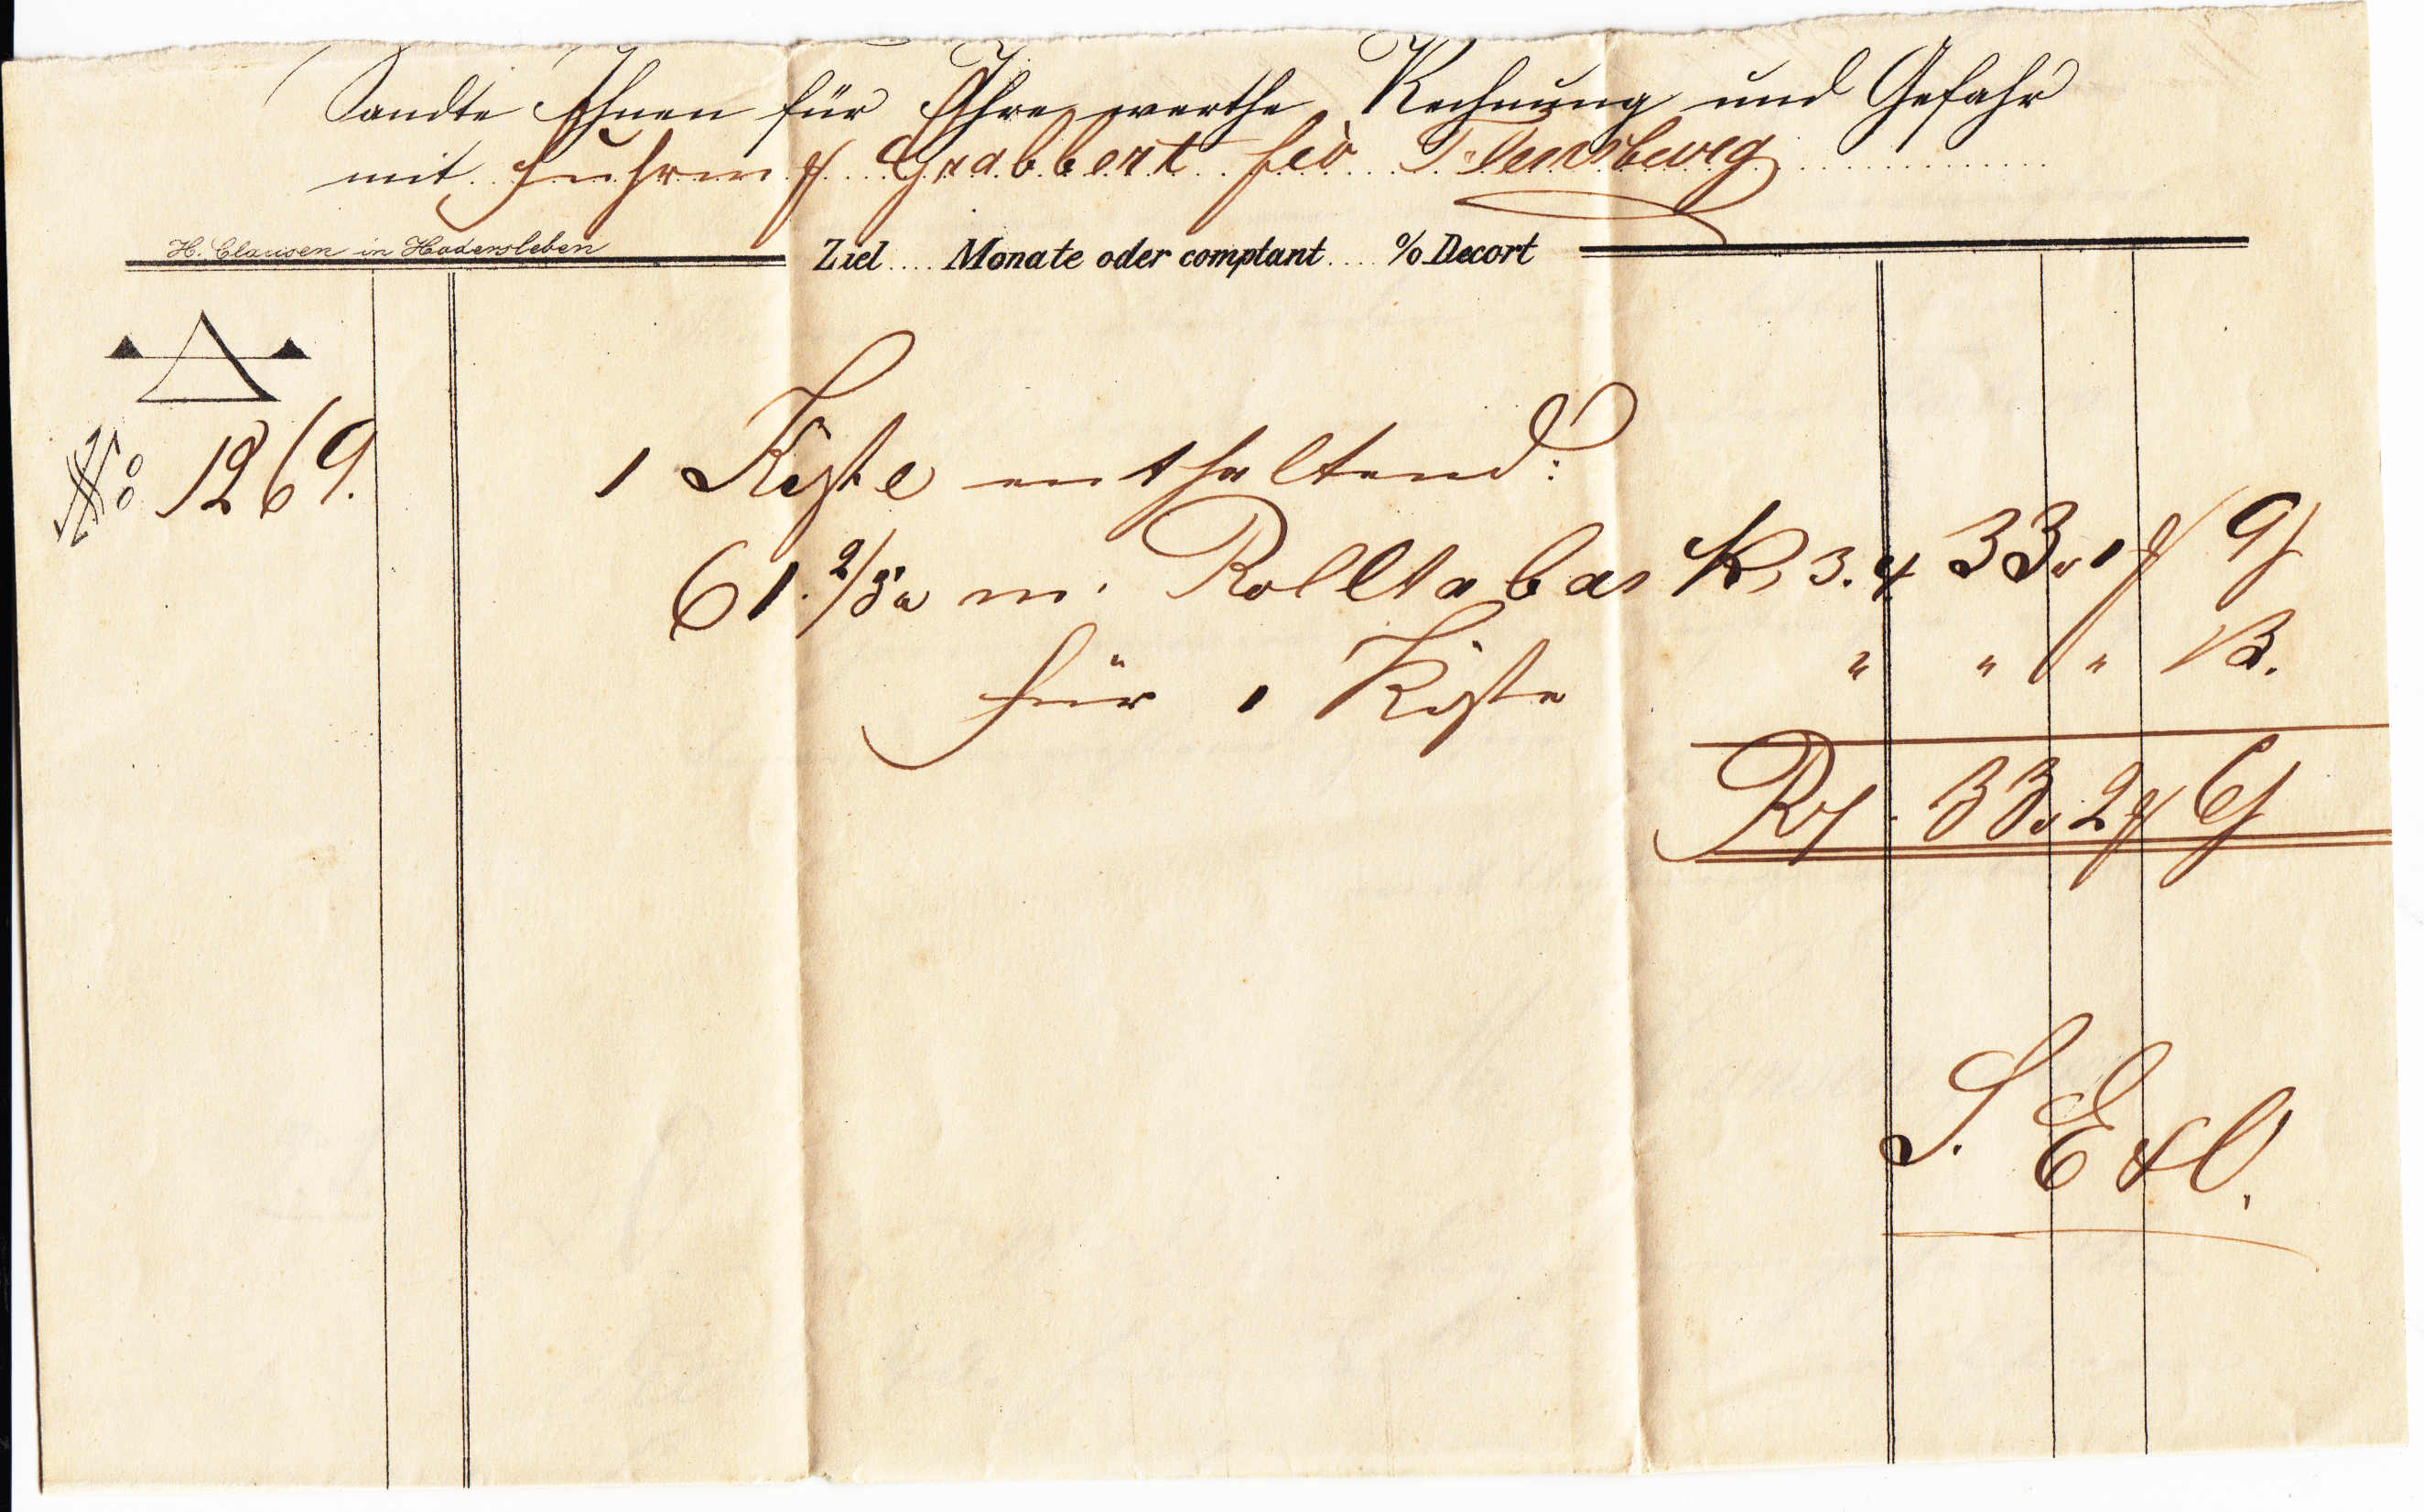 Sandte Ihnen für Ihre werthe Rechnung und Gefahr
mit Fuhrm Grabbert frco Flensburg
H. Clausen in Hadersleben
Ziel .... Monate oder comptant .... % Decort
No 1269.
1 Kiste enthaltend:
61. 2/5 m. Rolltabac 33 1 9
für 1 Kiste " " " 13.
33 2 6
S. E & O.